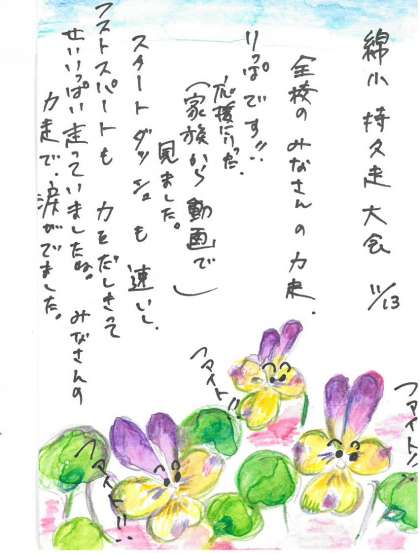 綿小 持久走 大会 11/13
全校の みなさん の 力走.
りっぱ です!!
応援に行った.
(家族から 動画で)
見ました。
スタートダッシュも 速いし.
ラストスパートも 力をだしきって
せいいっぱい 走っていましたね。 みなさんの
力走で.涙がでました。
ファイト!!
ファイト!!
ファイト!!